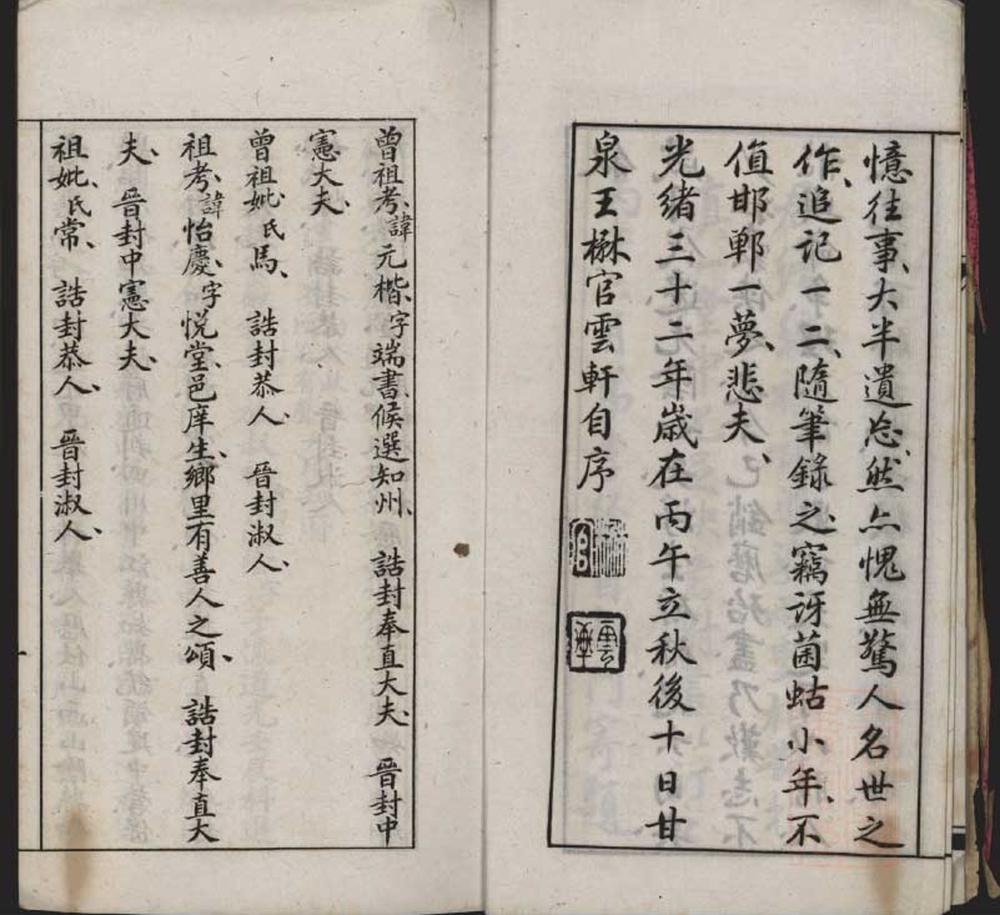 憶往事、大半遺忘、然亦愧無驚人名世之
作、追記一二、隨筆錄之、竊訝菌蛄小年、不
值邯鄲一夢、悲夫、
光緒三十二年歲在丙午立秋後十日甘
泉王楙官雲軒自序
楙官
雲軒
曾祖考、諱元楷、字端書、候選知州、誥封奉直大夫、晉封中
憲大夫、
曾祖妣、氏馬、誥封恭人、晉封淑人、
祖考、諱怡慶、字悅堂、邑庠生、鄉里有善人之頌、誥封奉直大
夫、晉封中憲大夫、
祖妣、氏常、誥封恭人、晉封淑人、